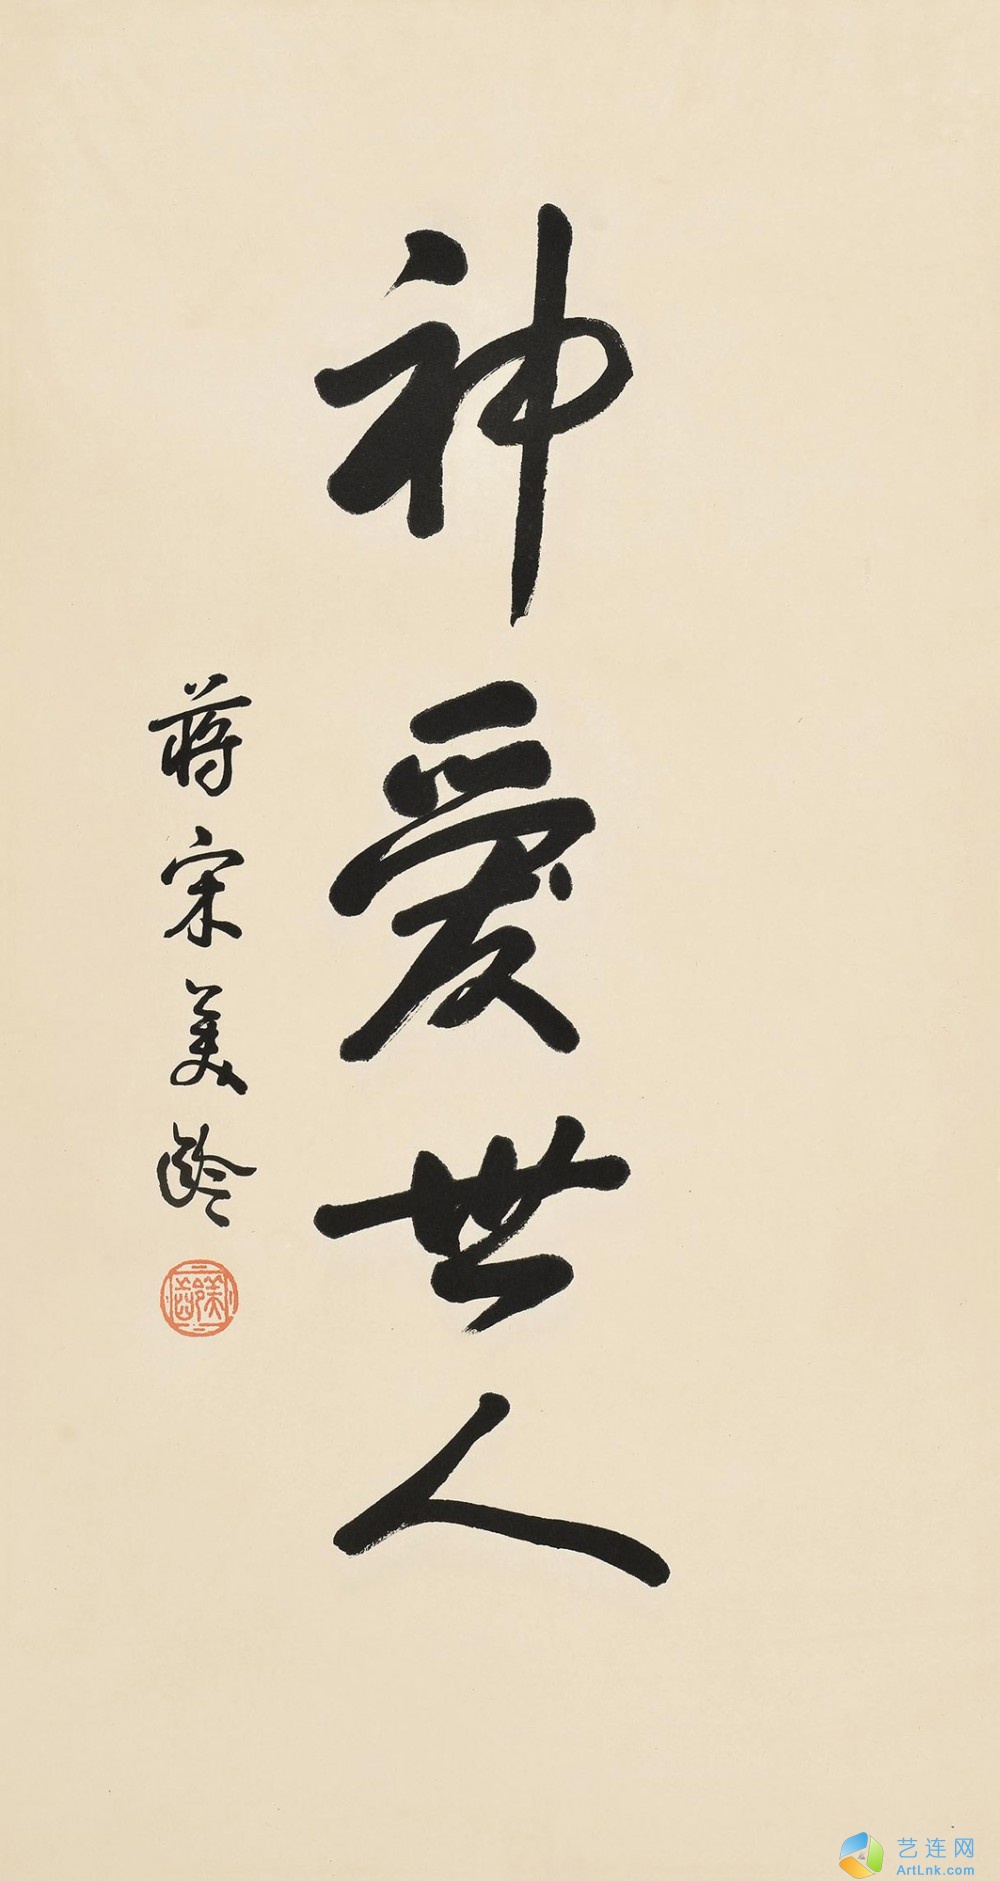 神愛世人
蔣宋美齡
艺连网
ArtLnk.com